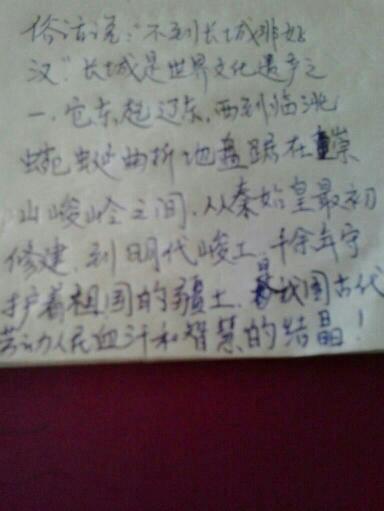 俗话说："不到长城非好
汉"长城是世界文化遗产之
一.它东起辽东,西到临洮
蜿蜒曲折地盘踞在崇
山峻岭之间.从秦始皇最初
修建,到明代峻工,千余年守
护着祖国的疆土.是我国古代
劳动人民血汗和智慧的结晶!